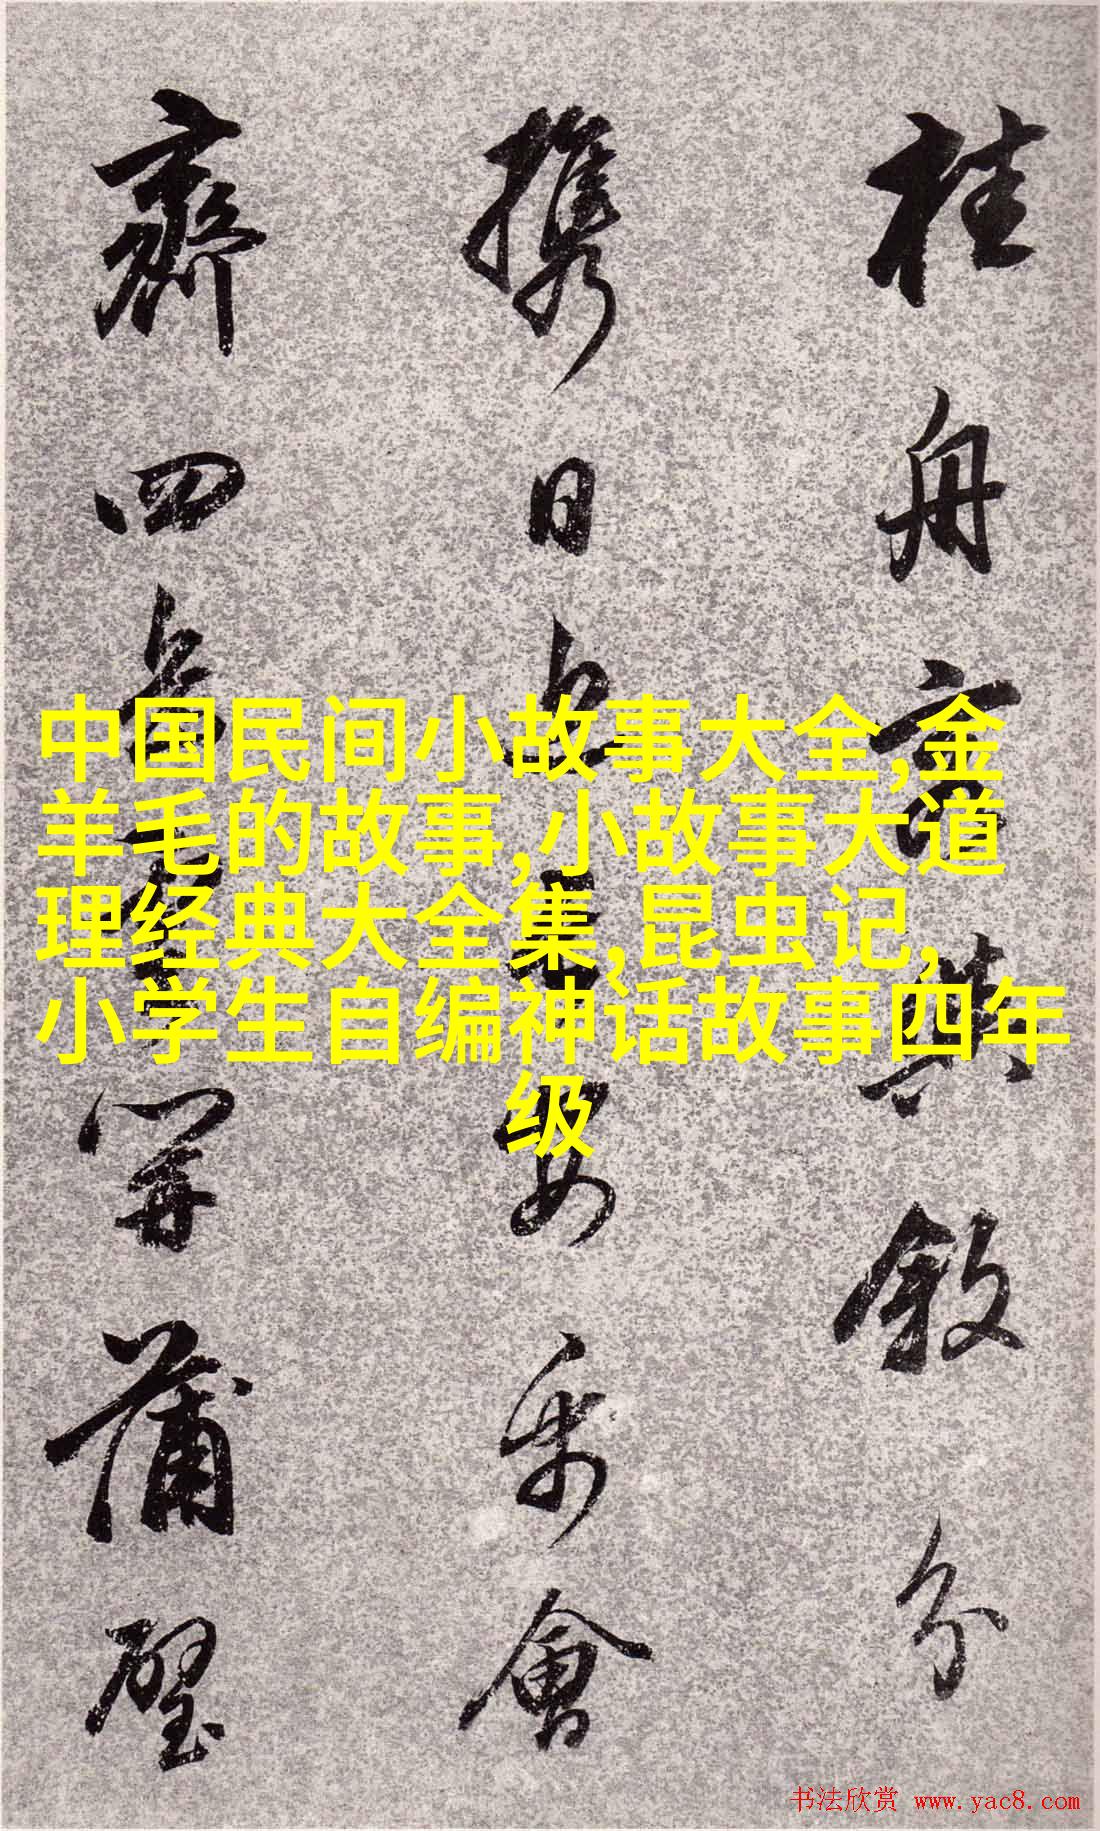 中国民间小故事大全,金
羊毛的故事,小故事大道
理经典大全集,昆虫记,
小学生自编神话故事四年
级
桂舟 敘分
攜日 安樂會
齊四 開蒲壁
书法欣赏 www.yac8.com